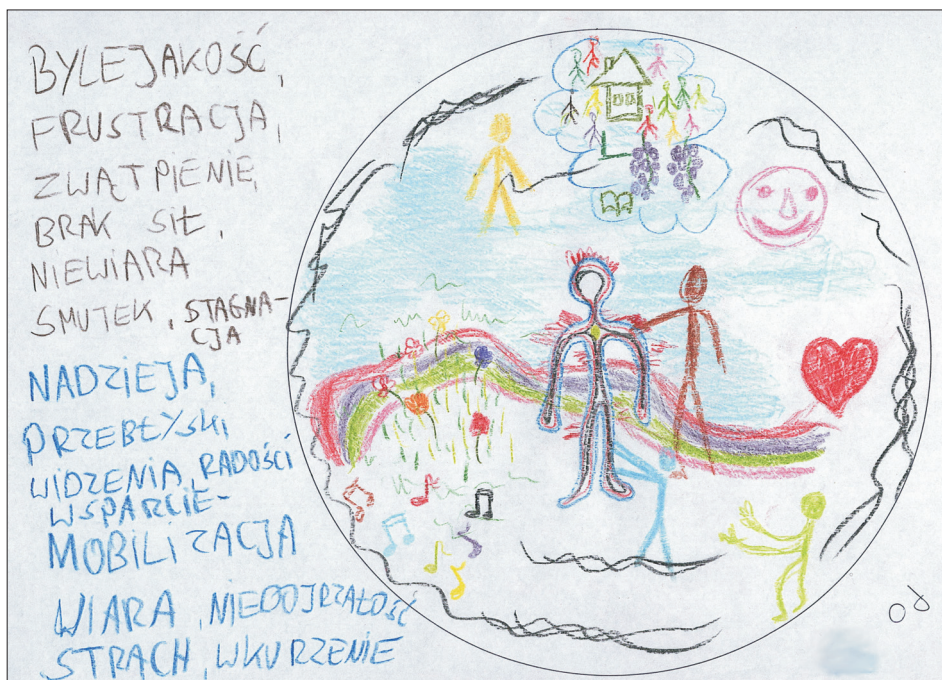 BYLEJAKOŚĆ,
FRUSTRACJA,
ZWĄTPIENIE,
BRAK SIŁ,
NIEWIARA
SMUTEK, STAGNA-
CJA
NADZIEJA,
PRZEBŁYSKI
WIDZENIA, RADOŚCI
WSPARCIE-
MOBILIZACJA
WIARA, NIEDOJRZAŁOŚĆ
STRACH, WKURZENIE